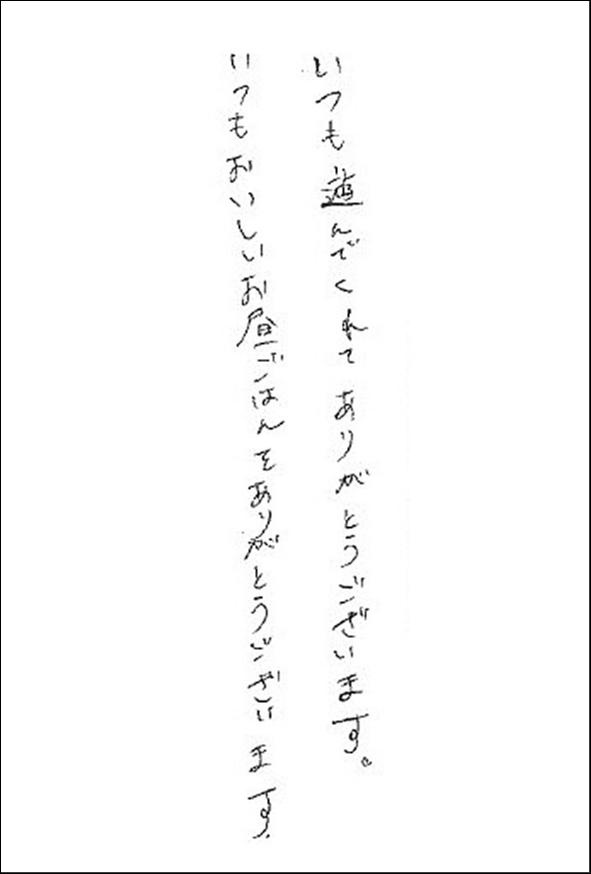 いつも遊んでくれてありがとうございます。
いつもおいしいお昼ごはんをありがとうございます.